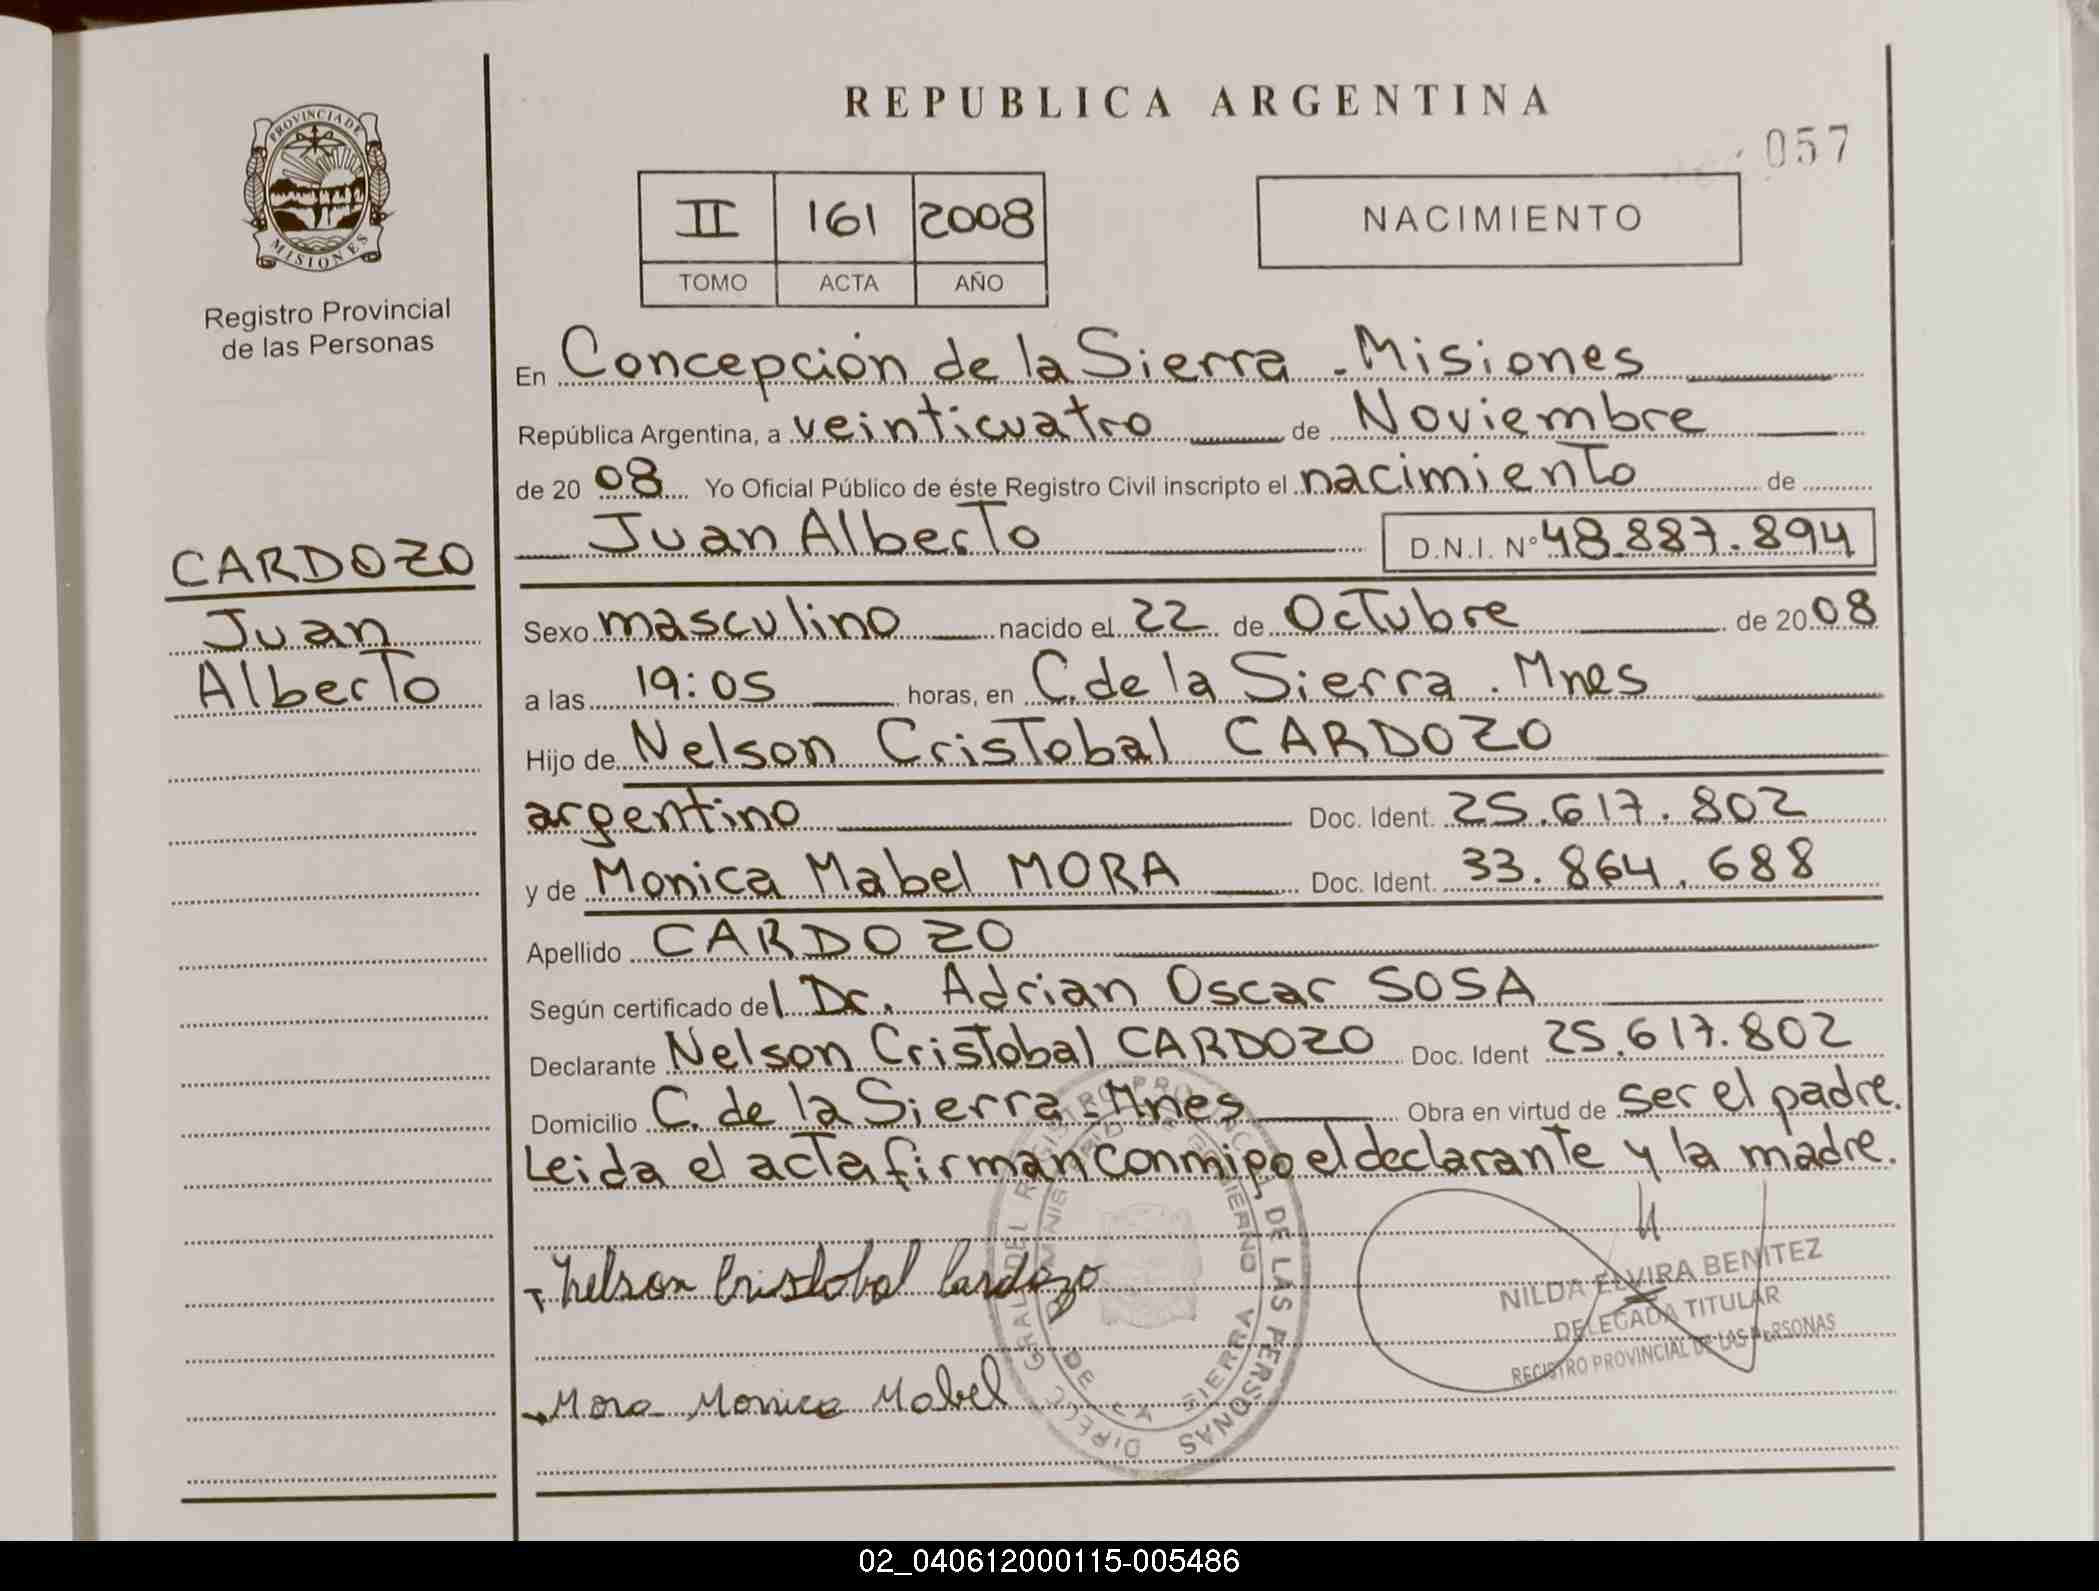 REPUBLICA ARGENTINA
057
PROVINCIA DE
MISIONES
Registro Provincial
de las Personas
II 161 2008
TOMO ACTA AÑO
NACIMIENTO
En Concepción de la Sierra - Misiones
República Argentina, a veinticuatro de Noviembre
de 2008 Yo Oficial Público de éste Registro Civil inscripto el nacimiento de
Juan Alberto D.N.I. N° 48.887.894
CARDOZO
Juan
Alberto
Sexo masculino nacido el 22 de Octubre de 2008
a las 19:05 horas, en C. de la Sierra . Mnes
Hijo de Nelson Cristobal CARDOZO
argentino Doc. Ident. 25.617.802
y de Monica Mabel MORA Doc. Ident. 33.864.688
Apellido CARDOZO
Según certificado del Dr. Adrian Oscar SOSA
Declarante Nelson Cristobal CARDOZO Doc. Ident 25.617.802
Domicilio C. de la Sierra - Mnes Obra en virtud de ser el padre.
Leida el acta firman conmigo el declarante y la madre.
Nelson Cristobal Cardozo
Mora Monica Mabel
NILDA ELVIRA BENITEZ
DELEGADA TITULAR
REGISTRO PROVINCIAL DE LAS PERSONAS
DE LAS PERSONAS
DE LA SIERRA
02_040612000115-005486